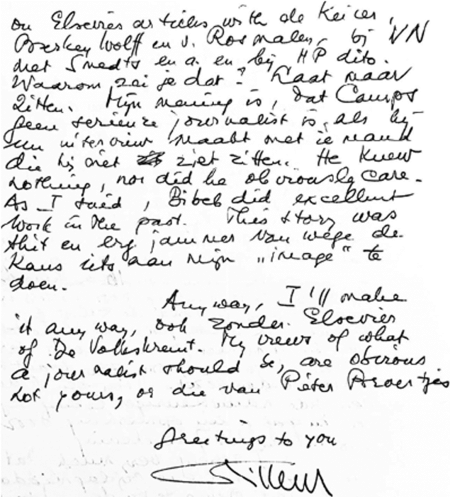 on Elseviers articles with de Keizer,
Boerkey Wolff en v. Rosmalen, bij VN
met Smedts en a. en bij HP dito.
Waarom zei je dat? Laat maar
Zitten. Mijn mening is, dat Camps
geen serieuze journalist is, als hij
een interview maakt met iemand
die hij niet ziet zitten. He knew
nothing, nor did he obviously care.
As I said, Bibeb did excellent
work in the past. This story was
shit en erg jammer van wege de
Kans iets aan mijn „image" te
doen.
Anyway, I'll make
it anyway, ook zonder Elseviers
of De Volkskrant. My views of what
a journalist should be, are obvious
not yours, or die van Pieter Broertjes
Greetings to you
Willem